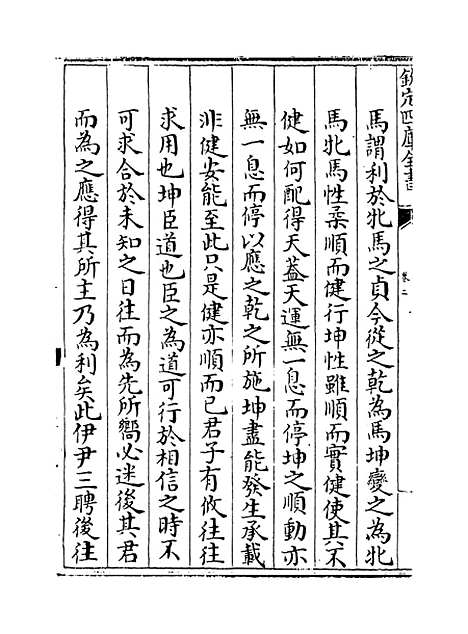 欽定四庫全書
卷二
馬謂利於牝馬之貞今從之乾為馬坤變之為牝
馬牝馬性柔順而健行坤性雖順而實健使其不
健如何配得天蓋天運無一息而停坤之順動亦
無一息而停以應之乾之所施坤盡能發生承載
非健安能至此只是健亦順而已君子有攸往往
求用也坤臣道也臣之為道可行於相信之時不
可求合於未知之日往而為先所嚮必迷後其君
而為之應得其所主乃為利矣此伊尹三聘後往